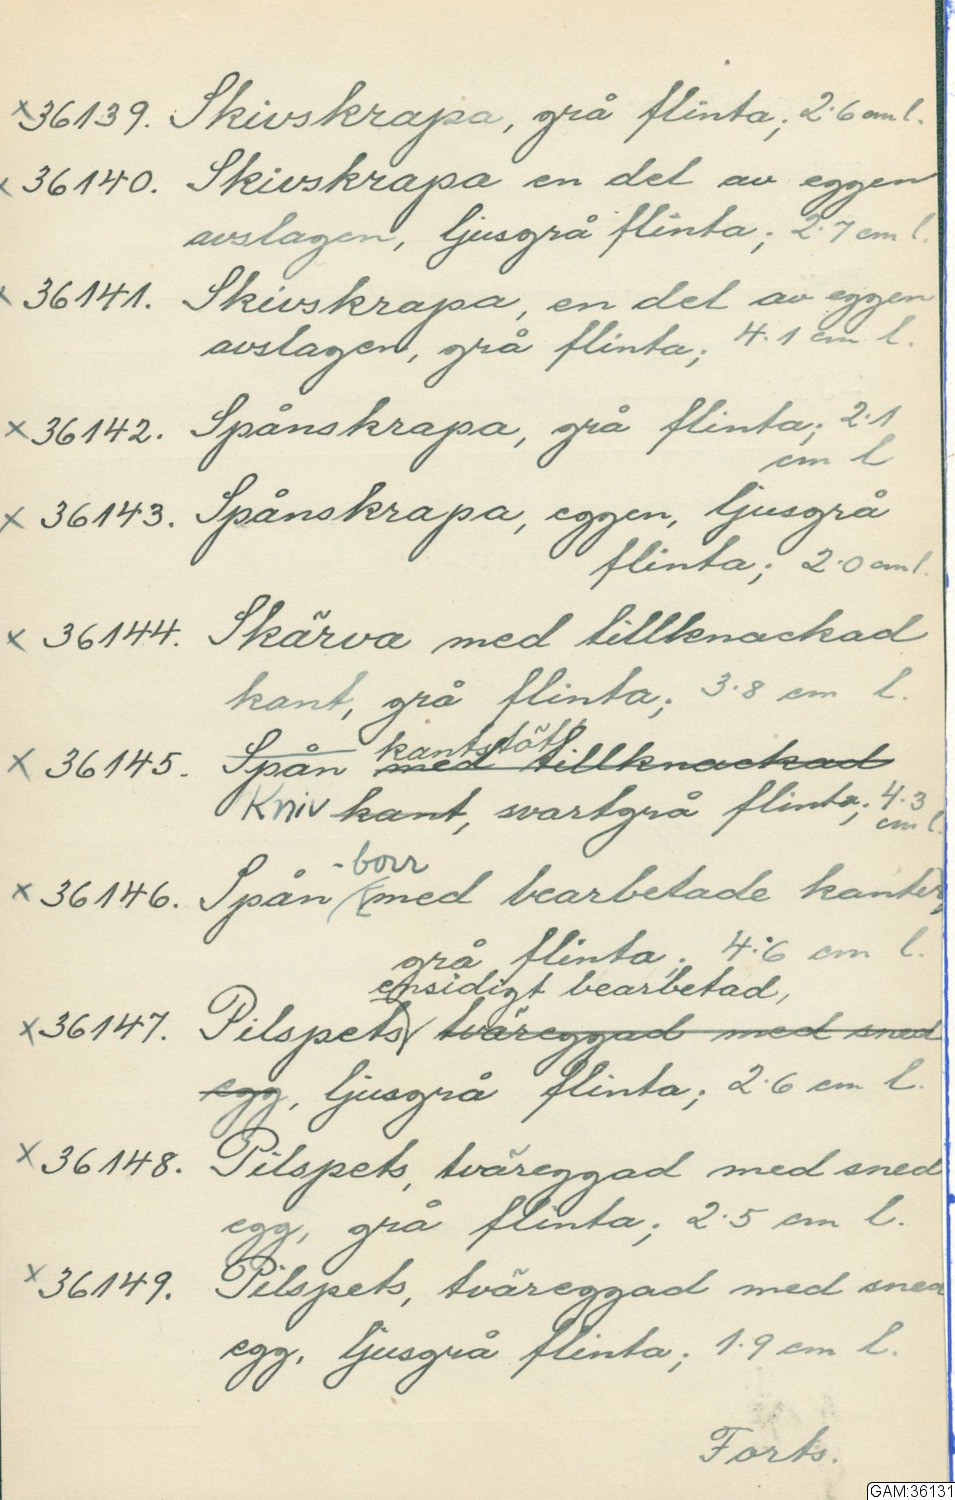 x 36139. Skivskrapa, grå flinta; 2.6 cm l.
x 36140. Skivskrapa en del av eggen
avslagen, ljusgrå flinta; 2.7 cm l.
x 36141. Skivskrapa, en del av eggen
avslagen, grå flinta; 4.1 cm l.
x 36142. Spånskrapa, grå flinta; 2.1
cm l
x 36143. Spånskrapa, eggen, ljusgrå
flinta; 2.0 cm l.
x 36144. Skärva med tillknackad
kant, grå flinta; 3.8 cm l.
kantstött
x 36145. Spån med tillknackad
Kniv kant, svartgrå flinta; 4.3
cm l.
-borr
x 36146. Spån med bearbetade kanter,
grå flinta; 4.6 cm l.
ensidigt bearbetad,
x 36147. Pilspets tväreggad med sned
egg, ljusgrå flinta; 2.6 cm l.
x 36148. Pilspets, tväreggad med sned
egg, grå flinta; 2.5 cm l.
x 36149. Pilspets, tväreggad med sned
egg, ljusgrå flinta; 1.9 cm l.
Forts.
GAM:36131